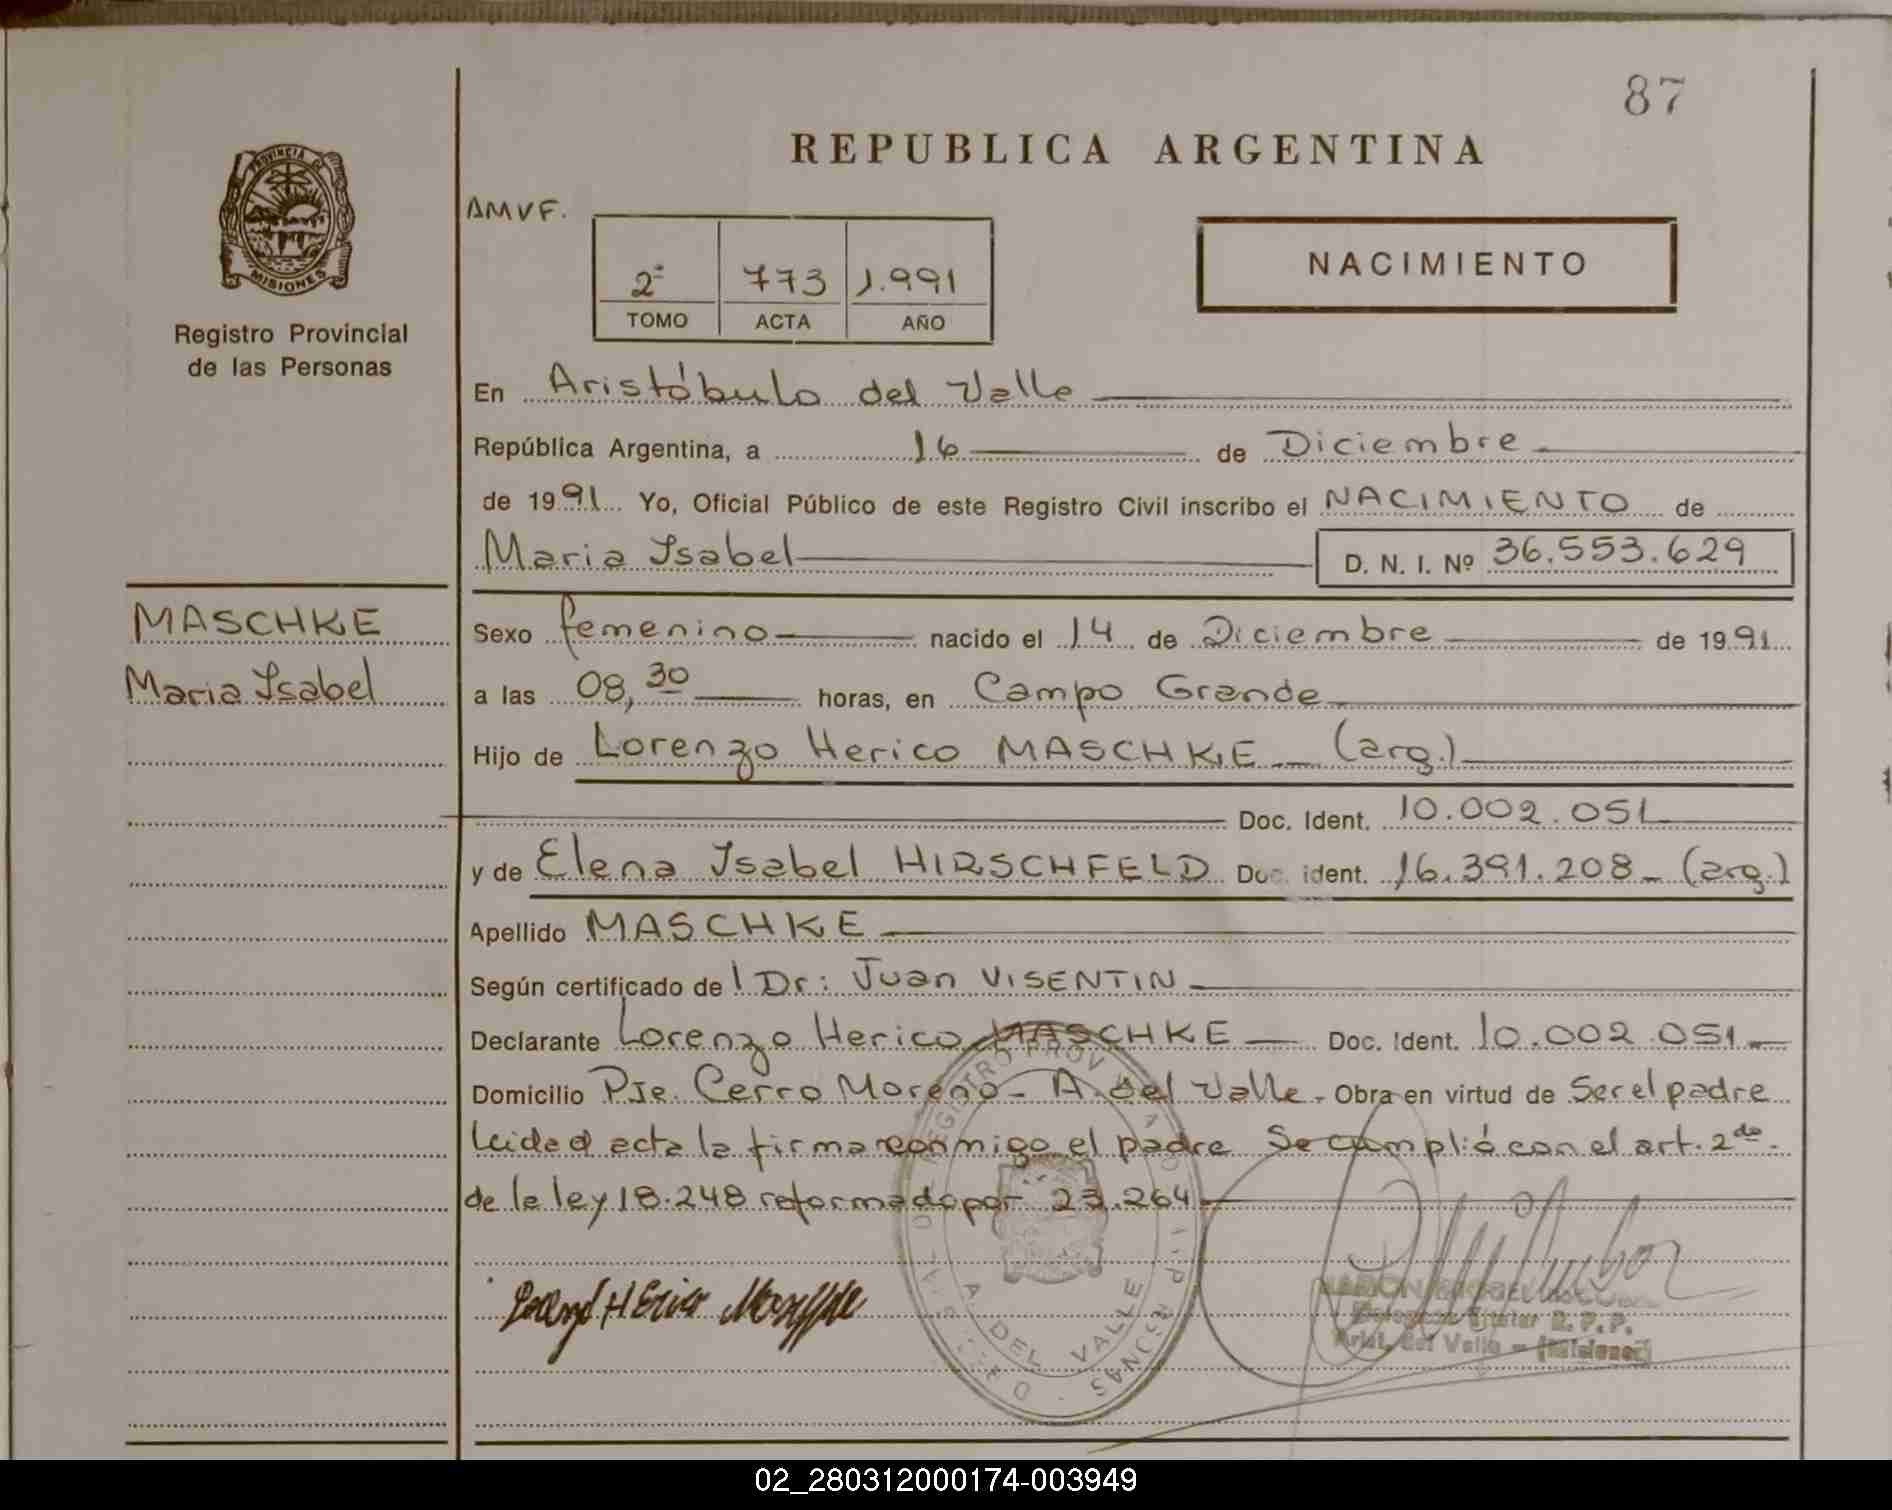 87
REPUBLICA ARGENTINA
PROVINCIA DE
MISIONES
Registro Provincial
de las Personas
AMVF.
2ª 773 1.991
TOMO ACTA AÑO
NACIMIENTO
En Aristóbulo del Valle
República Argentina, a 16 de Diciembre
de 1991 Yo, Oficial Público de este Registro Civil inscribo el NACIMIENTO de
Maria Isabel D. N. I. Nº 36.553.629
MASCHKE
Maria Isabel
Sexo femenino nacido el 14 de Diciembre de 1991
a las 08,30 horas, en Campo Grande
Hijo de Lorenzo Herico MASCHKE (arg.)
Doc. Ident. 10.002.051
y de Elena Isabel HIRSCHFELD Doc. ident. 16.391.208 (arg.)
Apellido MASCHKE
Según certificado de Dr: Juan VISENTIN
Declarante Lorenzo Herico MASCHKE Doc. Ident. 10.002.051
Domicilio Pje. Cerro Moreno - A. del Valle. Obra en virtud de Ser el padre
leida el acta la firma conmigo el padre Se cumplió con el art. 2do.
de la ley 18.248 reformado por 23.264
A. DEL VALLE
R. P. P.
Arist. del Valle - (Misiones)
02_280312000174-003949